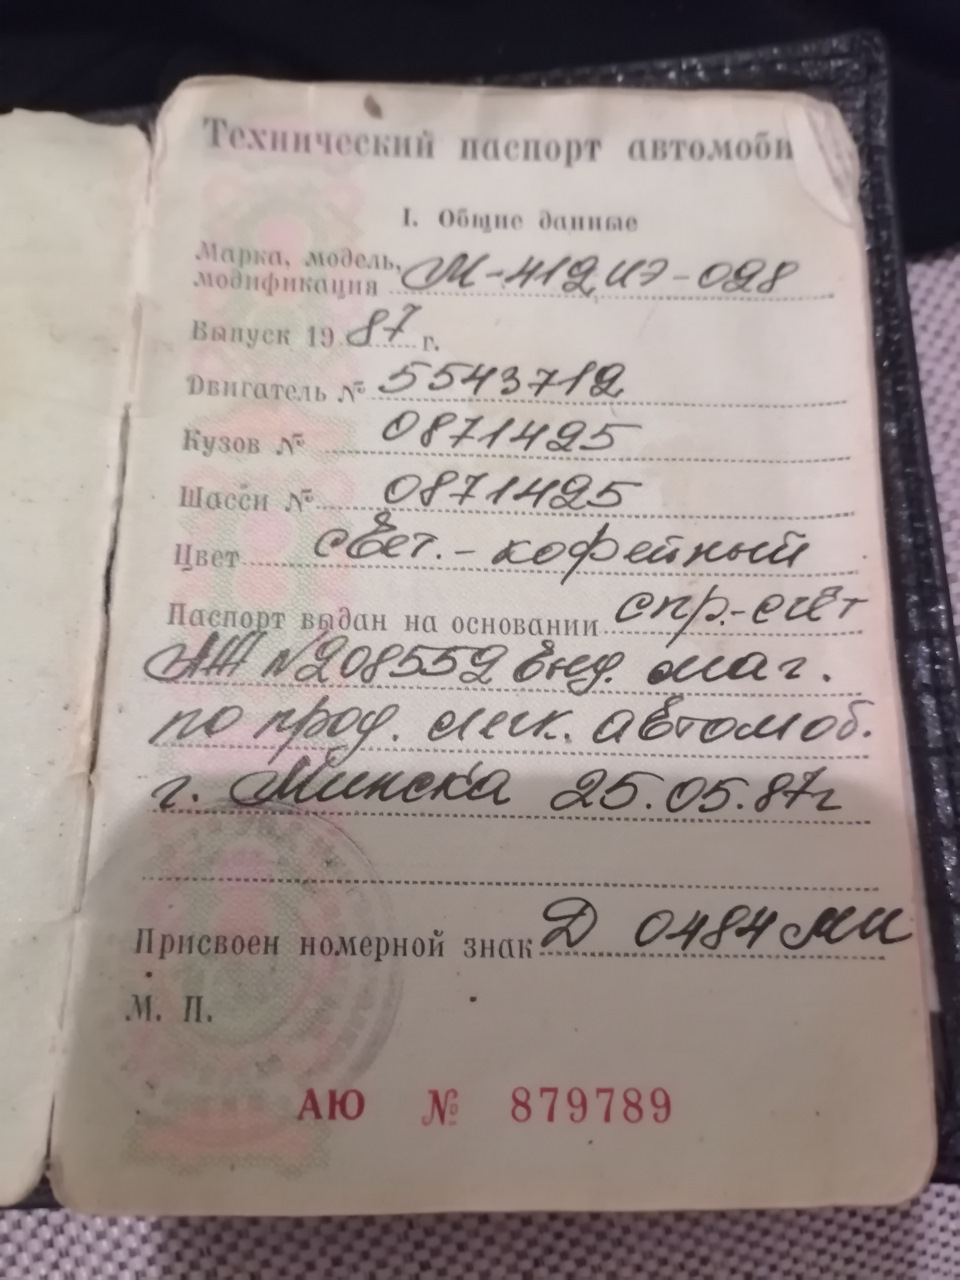 Технический паспорт автомоби
I. Общие данные
Марка, модель,
модификация М-412ИЭ-028
Выпуск 1987 г.
Двигатель № 5543712
Кузов № 0871425
Шасси № 0871425
Цвет свет.-кофейный
Паспорт выдан на основании спр.-счёт
АЖ №208552 внд. маг.
по прод. легк. автомоб.
г. Минска 25.05.87г
Присвоен номерной знак Д 0484 МИ
М. П.
АЮ № 879789